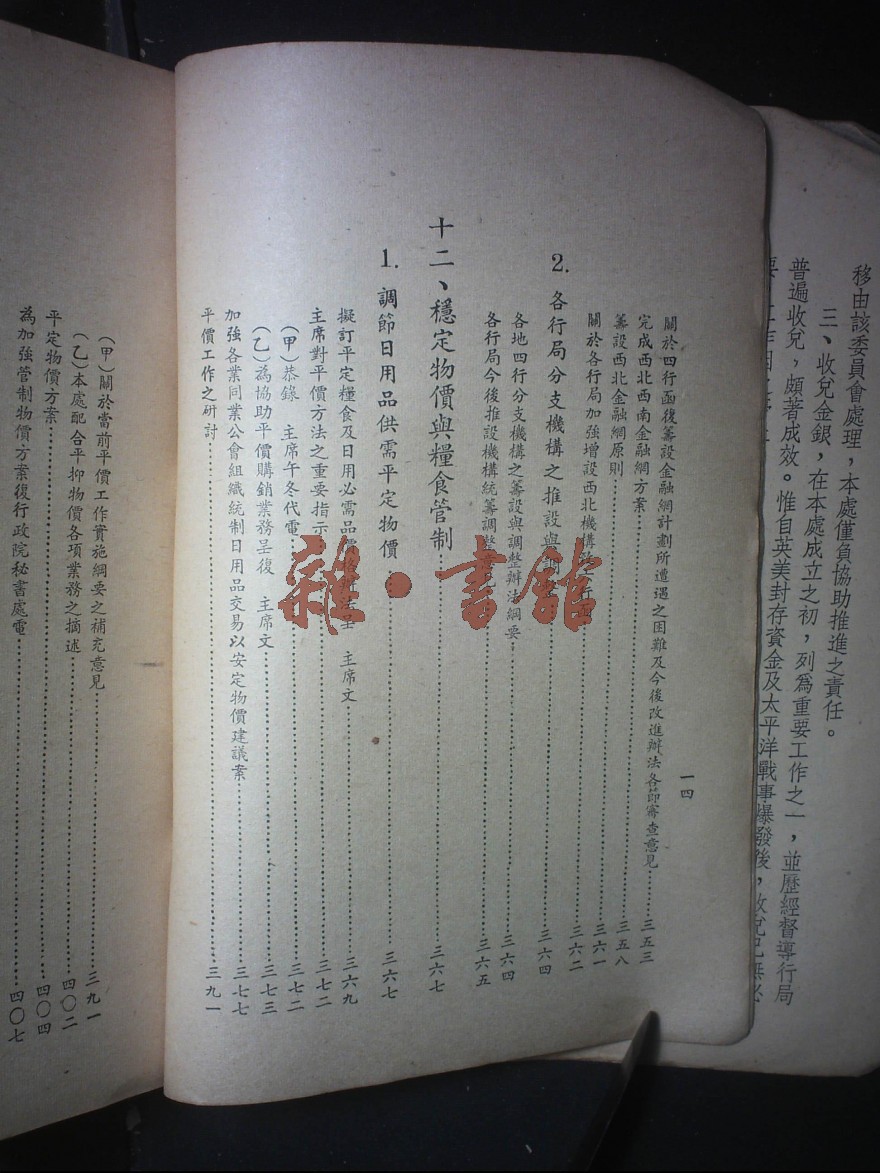 移由該委員會處理，本處僅負協助推進之責任。
三、收兌金銀，在本處成立之初，列爲重要工作之一，並歷經督導行局
普遍收兌，頗著成效。惟自英美封存資金及太平洋戰事爆發後，收兌已無必
一四
關於四行函復籌設金融網計劃所遭遇之困難及今後改進辦法各節審查意見……三五三
完成西北西南金融網方案……三五八
籌設西北金融網原則……三六一
關於各行局加強增設西北機構……三六二
2. 各行局分支機構之推設與……三六四
各地四行分支機構之籌設與調整辦法綱要……三六四
各行局今後推設機構統籌調整……三六五
十二、穩定物價與糧食管制……三六七
1. 調節日用品供需平定物價……三六七
擬訂平定糧食及日用必需品價 主席文……三六九
主席對平價方法之重要指示……三七二
（甲）恭錄 主席午冬代電……三七二
（乙）為協助平價購銷業務呈復 主席文……三七三
加強各業同業公會組織統制日用品交易以安定物價建議案……三七七
平價工作之研討……三九一
（甲）關於當前平價工作實施綱要之補充意見……三九一
（乙）本處配合平抑物價各項業務之摘述……四〇二
平定物價方案……四〇四
為加強管制物價方案復行政院秘書處電……四〇七
雜·書館